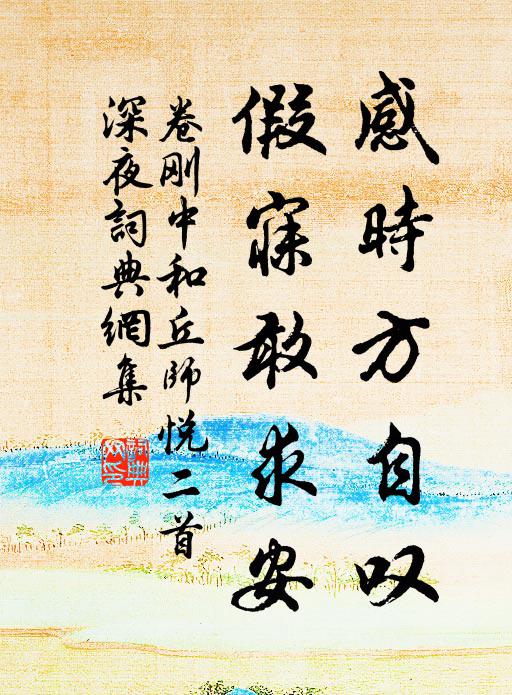 感時方自叹
假寐敢求安
卷刚中和丘师悦二首
深夜詞典網集